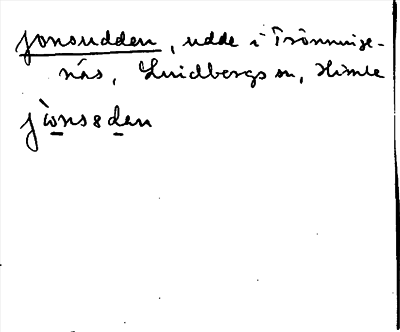 Jonsudden, udde i Trönninge-
näs, Lindbergs sn, Himle
jòns8den